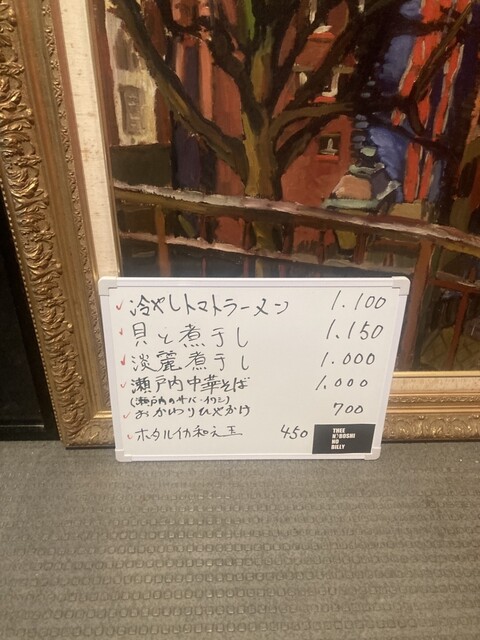 冷やしトマトラーメン 1.100
貝と煮干し 1.150
淡麗煮干し 1.000
瀬戸内中華そば 1.000
(瀬戸内のサバ・イワシ)
おかわりひやかけ 700
ホタルイカ和え玉 450
THEE
NIBOSHI
NO
BILLY